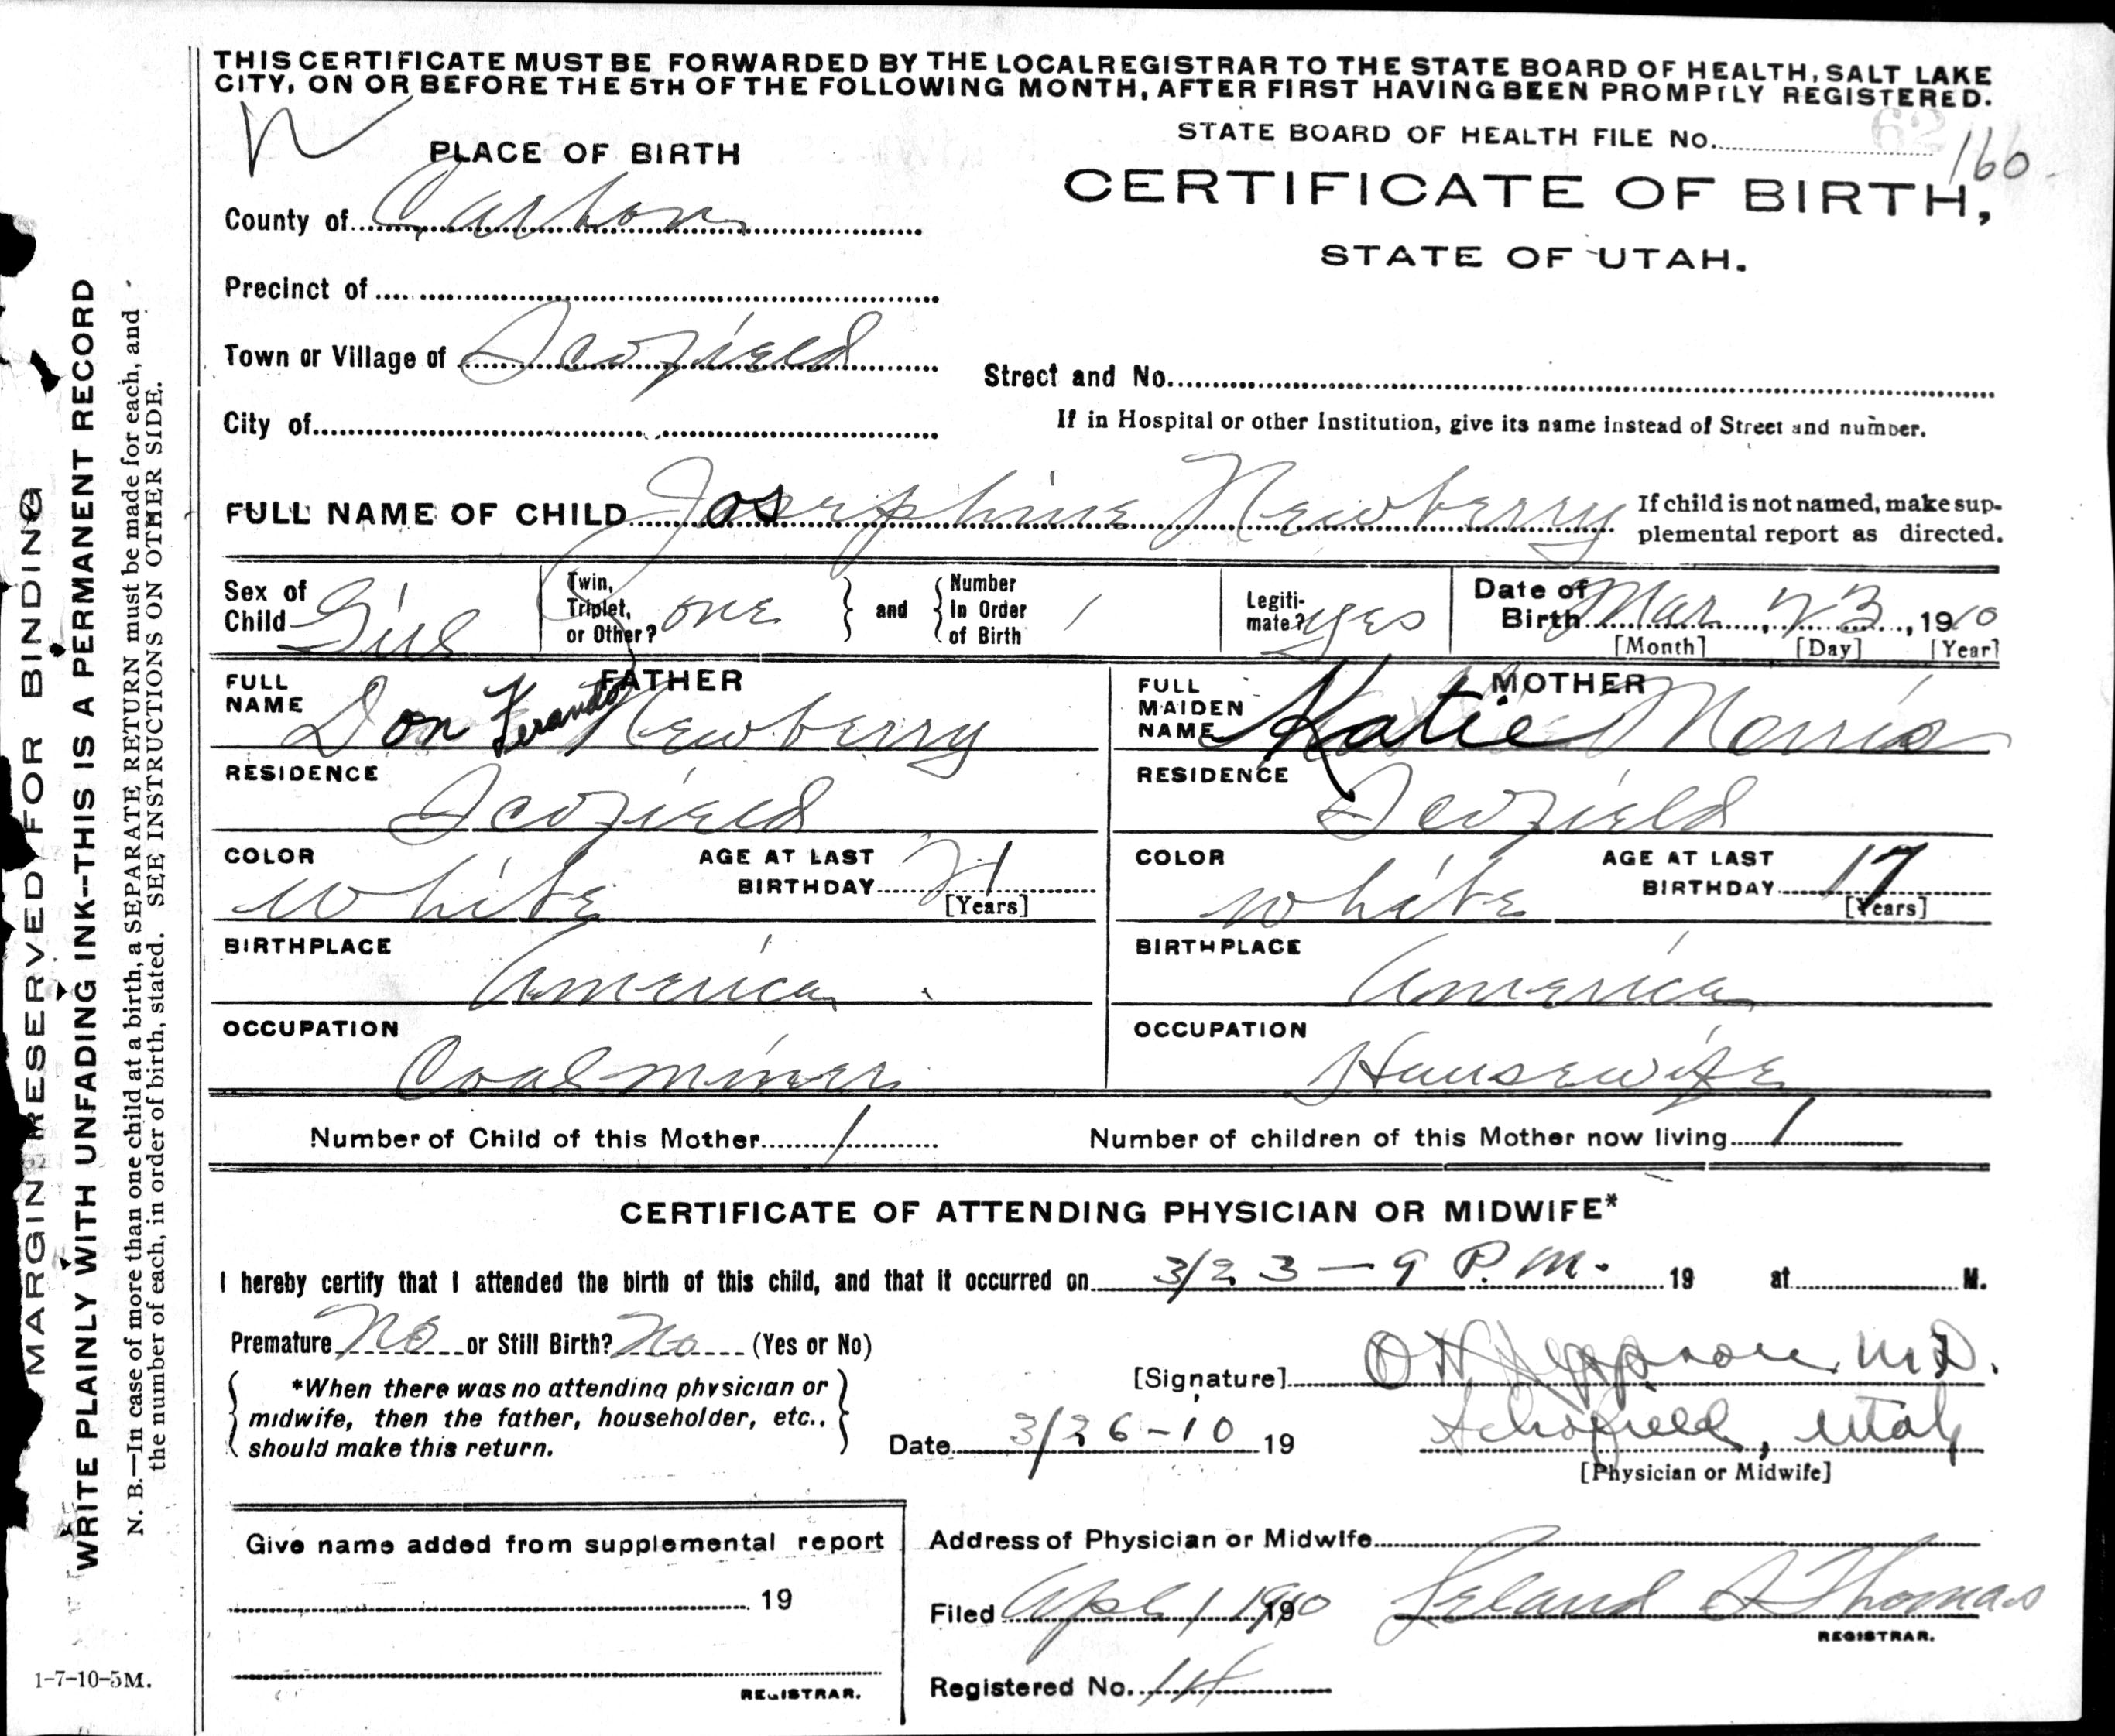 THIS CERTIFICATE MUST BE FORWARDED BY THE LOCAL REGISTRAR TO THE STATE BOARD OF HEALTH, SALT LAKE
CITY, ON OR BEFORE THE 5TH OF THE FOLLOWING MONTH, AFTER FIRST HAVING BEEN PROMPTLY REGISTERED.
STATE BOARD OF HEALTH FILE No. 160
PLACE OF BIRTH
CERTIFICATE OF BIRTH,
STATE OF UTAH.
County of Carbon
Precinct of
Town or Village of Scofield
Street and No.
City of
If in Hospital or other Institution, give its name instead of Street and number.
FULL NAME OF CHILD Josephine Newberry
If child is not named, make sup-
plemental report as directed.
Sex of Child Girl
Twin, Triplet, or Other? one
and
Number in Order of Birth 1
Legiti-mate? yes
Date of Birth Mar, 23, 1910
[Month] [Day] [Year]
FATHER
FULL NAME Don Ferando Newberry
RESIDENCE
Scofield
COLOR
White
AGE AT LAST BIRTHDAY 21
[Years]
BIRTHPLACE
America
OCCUPATION
Coalminer
MOTHER
FULL MAIDEN NAME Katie Morris
RESIDENCE
Scofield
COLOR
White
AGE AT LAST BIRTHDAY 17
[Years]
BIRTHPLACE
America
OCCUPATION
Housewife
Number of Child of this Mother 1
Number of children of this Mother now living 1
CERTIFICATE OF ATTENDING PHYSICIAN OR MIDWIFE*
I hereby certify that I attended the birth of this child, and that it occurred on 3/23 - 9 P.M. 19 at M.
Premature No or Still Birth? No (Yes or No)
*When there was no attending physician or
midwife, then the father, householder, etc.,
should make this return.
[Signature] O H M.D.
Date 3/26-10 19
Schofield, Utah
[Physician or Midwife]
Give name added from supplemental report
19
REGISTRAR.
Address of Physician or Midwife
Filed Apl 1 1910 Leland A Thomas
REGISTRAR.
Registered No. 14
MARGIN RESERVED FOR BINDING
WRITE PLAINLY WITH UNFADING INK--THIS IS A PERMANENT RECORD
N. B.—In case of more than one child at a birth, a SEPARATE RETURN must be made for each, and
the number of each, in order of birth, stated. SEE INSTRUCTIONS ON OTHER SIDE.
1-7-10-5M.